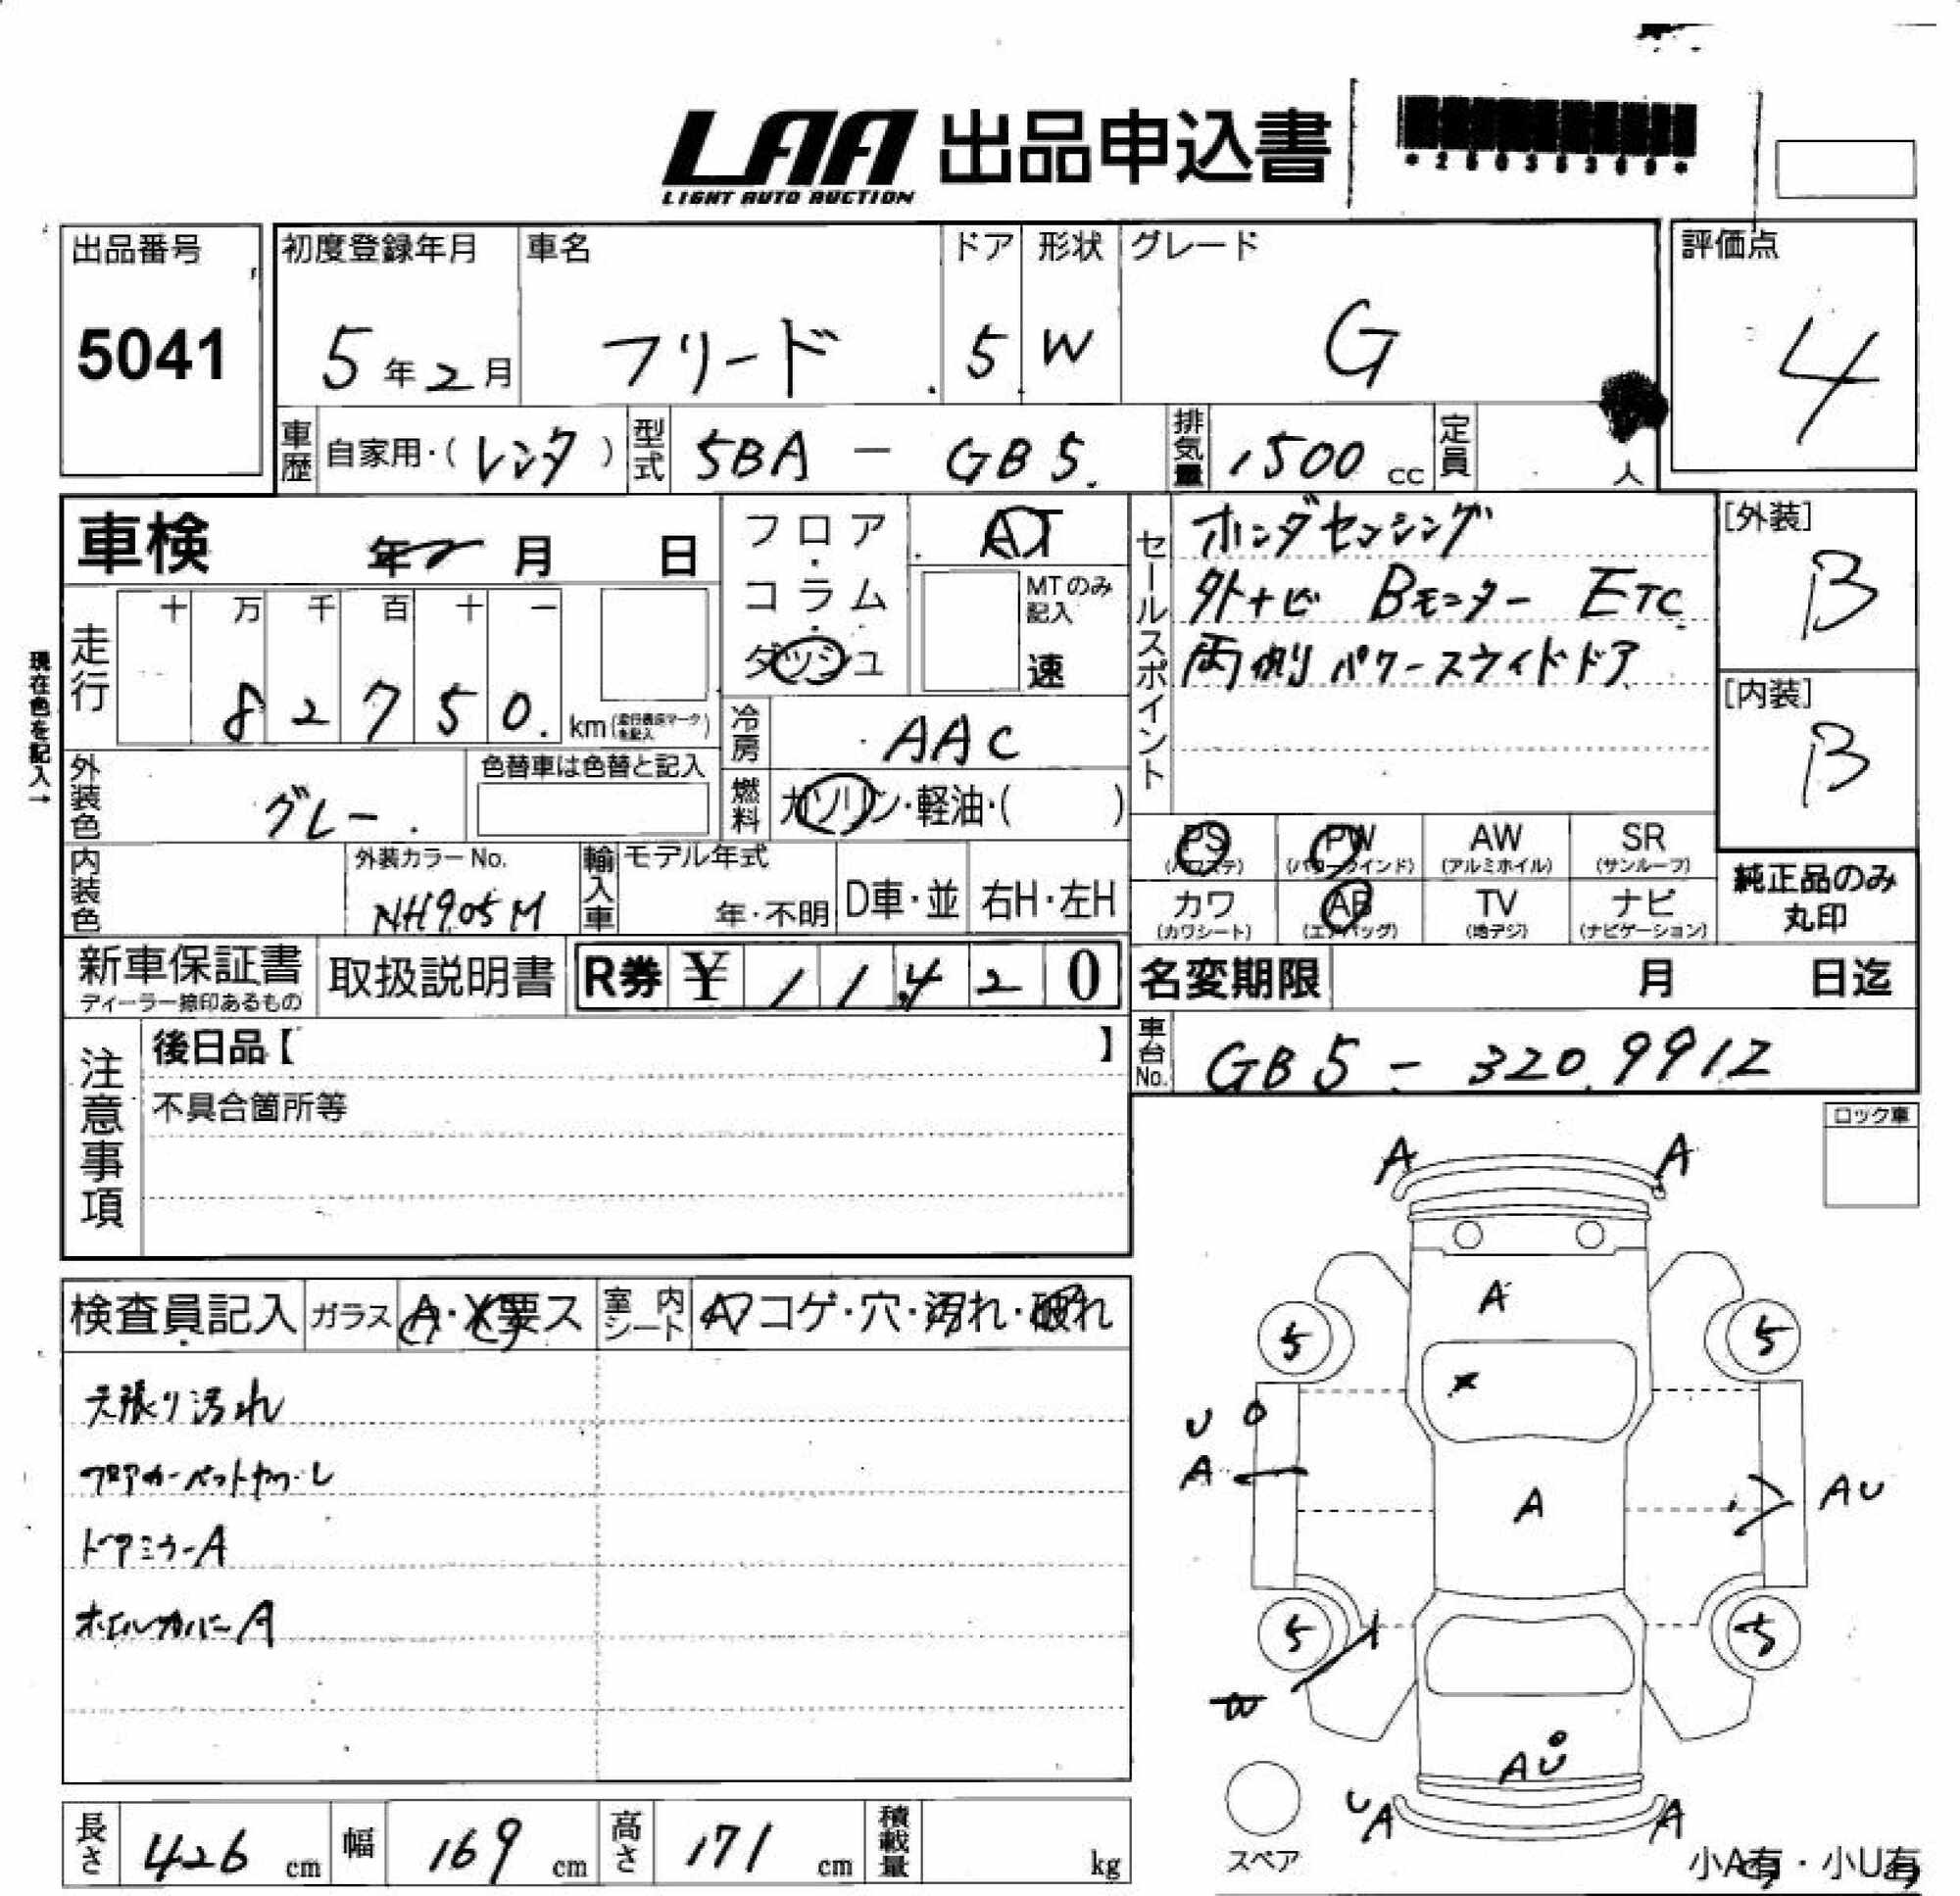 LAA 出品申込書
LIGHT AUTO AUCTION
出品番号
5041
初度登録年月
5年2月
車名
フリード
ドア
5
形状
W
グレード
G
評価点
4
車歴 自家用・(レンタ)
型式 5BA - GB5
排気量 1500 cc
定員 人
車検 年 月 日
フロア・コラム・ダッシュ
AT
MTのみ記入
速
セールスポイント
ホンダセンシング
外ナビ Bモニター ETC
両側パワースライドドア
[外装]
B
[内装]
B
現在色を記入→
走行
十 万 千 百 十 一
8 2 7 5 0 km
冷房 AAC
燃料 ガソリン・軽油・( )
外装色 グレー
色替車は色替と記入
内装色
外装カラーNo.
NH905M
輸入車
モデル年式
年・不明
D車・並
右H・左H
PS (パワステ)
PW (パワーウインド)
AW (アルミホイル)
SR (サンルーフ)
カワ (カワシート)
AB (エアバッグ)
TV (地デジ)
ナビ (ナビゲーション)
純正品のみ
丸印
新車保証書
ディーラー捺印あるもの
取扱説明書
R券 ¥ 1 1 4 2 0
名変期限 月 日迄
車台No. GB5 - 3209912
注意事項
後日品【 】
不具合箇所等
ロック車
検査員記入
ガラス A・X・要ス
室内シート
コゲ・穴・汚れ・破れ
天張り汚れ
フロアカーペット
ドアミラーA
ホイルカバーA
A A
A
5 5
U
A
A
A U
5 5
W
A U
U A A
スペア
小A有・小U有
長さ 426 cm
幅 169 cm
高さ 171 cm
積載量 kg